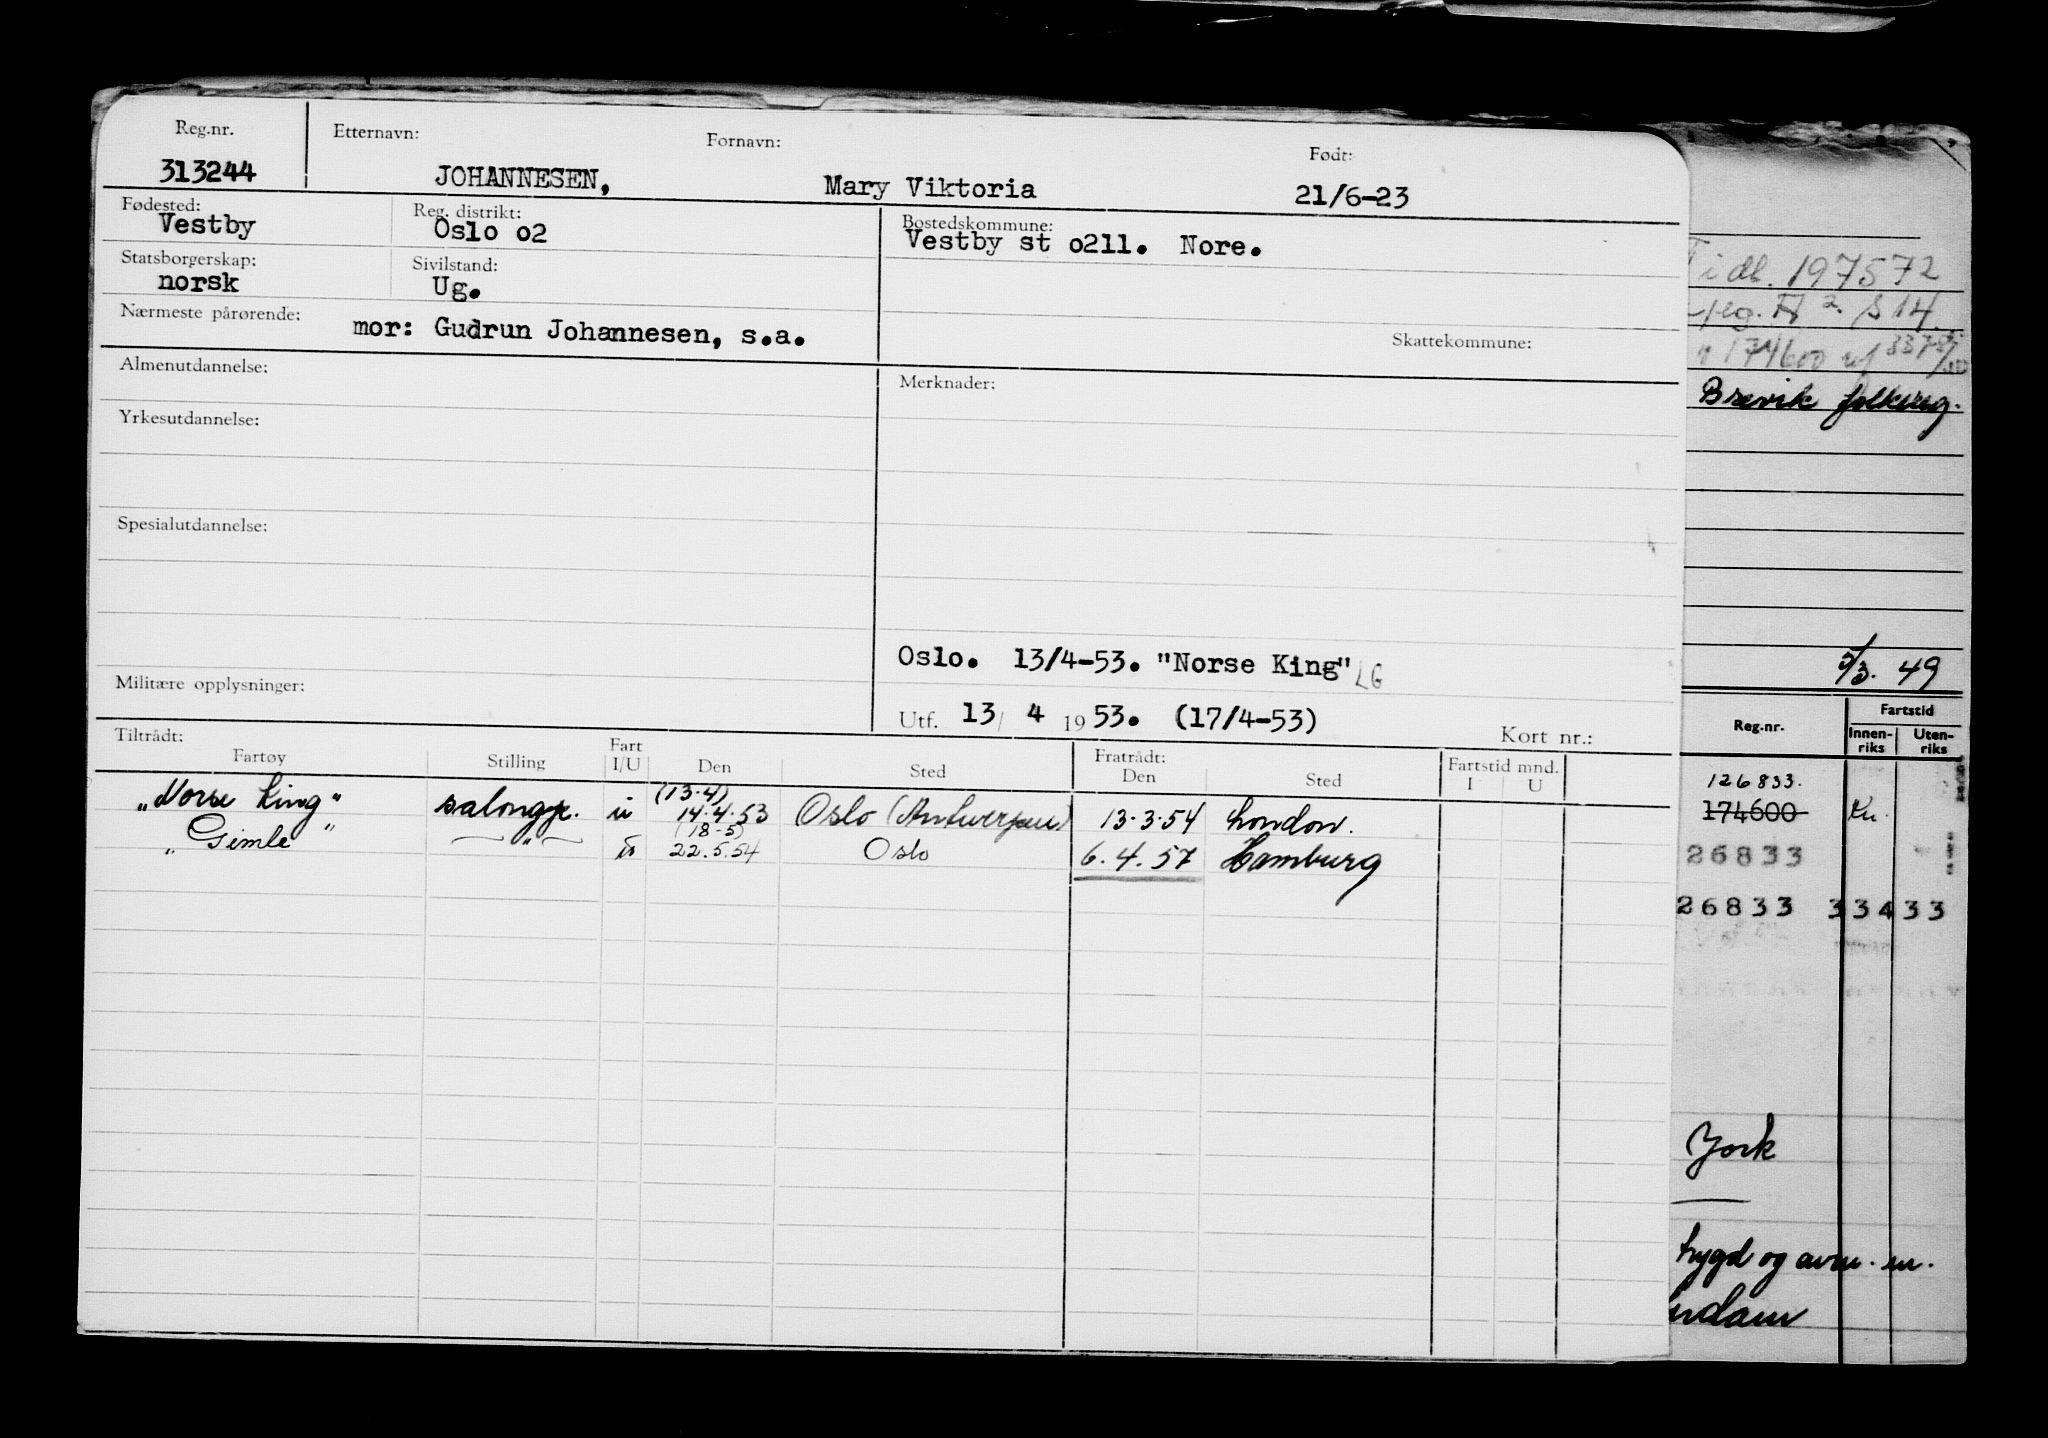 Reg.nr. Etternavn: Fornavn: Født:
313244 JOHANNESEN, Mary Viktoria 21/6-23
Fødested: Reg. distrikt: Bostedskommune:
Vestby Oslo o2 Vestby st o211. Nore.
Statsborgerskap: Sivilstand:
norsk Ug.
Nærmeste pårørende:
mor: Gudrun Johannesen, s.a.
Skattekommune:
Almenutdannelse: Merknader:
Yrkesutdannelse:
Spesialutdannelse:
Oslo. 13/4-53. "Norse King" LG
Militære opplysninger:
Utf. 13/ 4 1953. (17/4-53) Kort nr.:
Tiltrådt: Fratrådt: Fartstid mnd.
Fartøy Stilling Fart I/U Den Sted Den Sted I U
(13.4)
"Norse King" salongp. u 14.4.53 Oslo (Antwerpen) 13.3.54 London.
(18-5)
"Gimle" — " — u 22.5.54 Oslo 6.4.57 Hamburg
197572
S 14.
174600
Brevik folkereg.
5/3. 49
Reg.nr. Fartstid
Innen-riks Uten-riks
126833.
174600
26833
26833 33433
York
trygd og